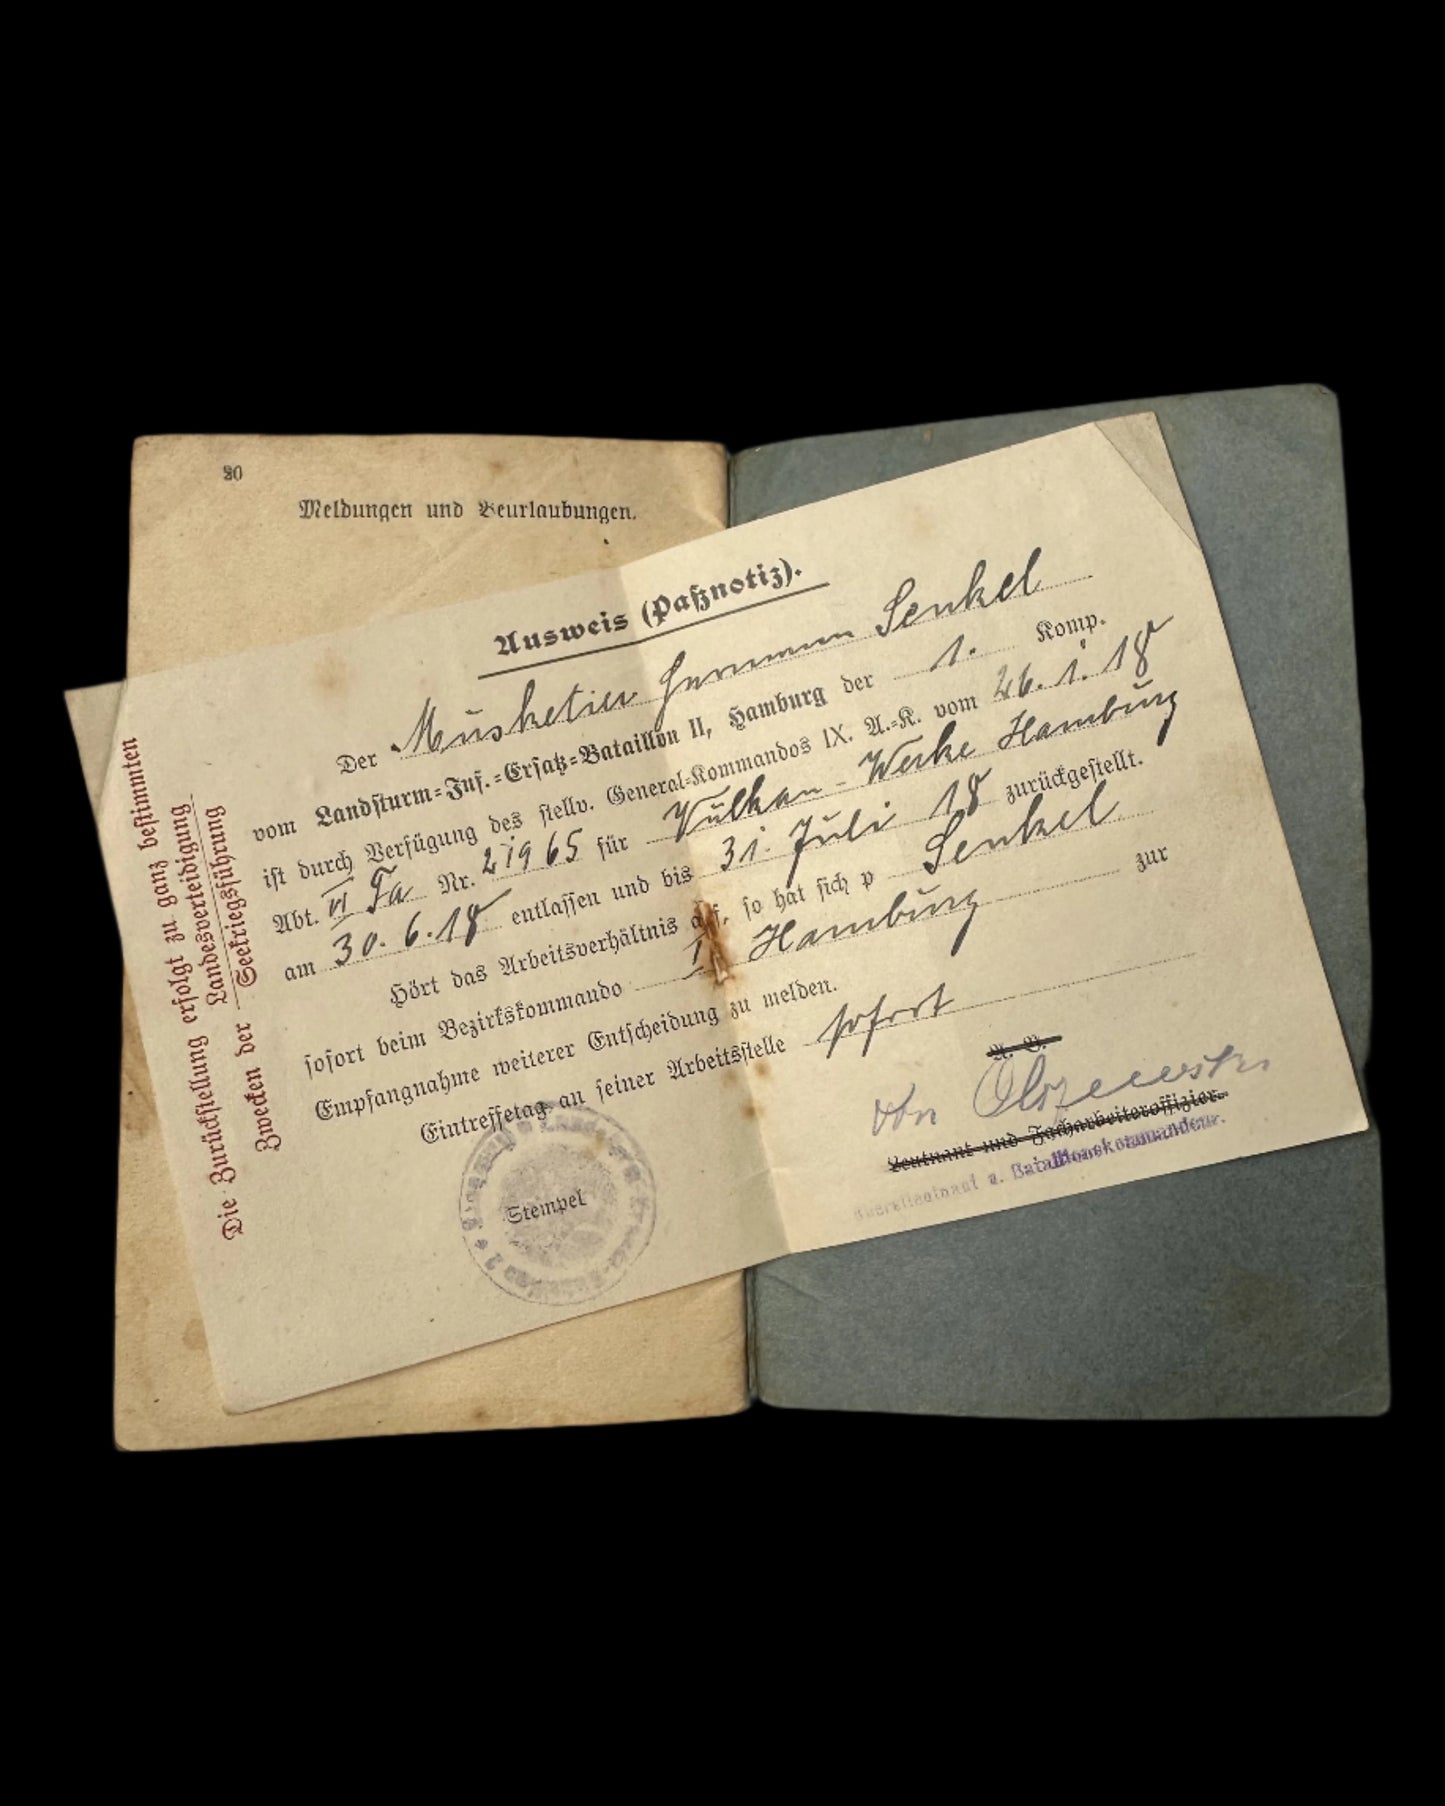 20
Meldungen und Beurlaubungen.
Ausweis (Paßnotiz).
Der Musketier Hermann Senkel
vom Landsturm-Inf.-Ersatz-Bataillon II, Hamburg der 1. Komp.
ist durch Verfügung des stellv. General-Kommandos IX. A.-K. vom 26. 1. 18
Abt. VI Fa Nr. 21965 für Vulkan-Werke Hamburg
am 30. 6. 18 entlassen und bis 31. Juli 18 zurückgestellt.
Hört das Arbeitsverhältnis auf, so hat sich p Senkel
sofort beim Bezirkskommando I Hamburg zur
Empfangnahme weiterer Entscheidung zu melden.
Eintreffetag an seiner Arbeitsstelle sofort
Stempel
Leutnant und Facharbeiteroffizier.
u. Bataillonskommandeur.
Die Zurückstellung erfolgt zu ganz bestimmten
Zwecken der Landesverteidigung
Seekriegsführung